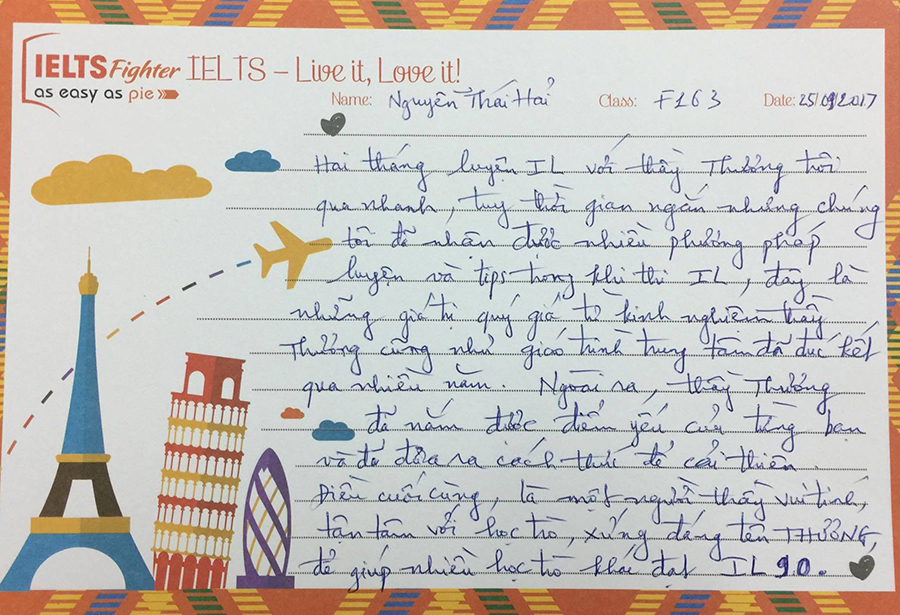 IELTS Fighter IELTS – Live it, Love it!
as easy as pie
Name: Nguyễn Thái Hải Class: F163 Date: 25/09/2017
Hai tháng luyện IL với thầy Thưởng trôi
qua nhanh, tuy thời gian ngắn nhưng chúng
tôi đã nhận được nhiều phương pháp
luyện và tips trong khi thi IL, đây là
những giá trị quý giá từ kinh nghiệm thầy
Thưởng cũng như giáo trình trung tâm đã đúc kết
qua nhiều năm. Ngoài ra, thầy Thưởng
đã nắm được điểm yếu của từng bạn
và đã đưa ra cách thức để cải thiện.
Điều cuối cùng, là một người thầy vui tính,
tận tâm với học trò, xứng đáng tên THƯỞNG,
để giúp nhiều học trò khác đạt IL 9.0.